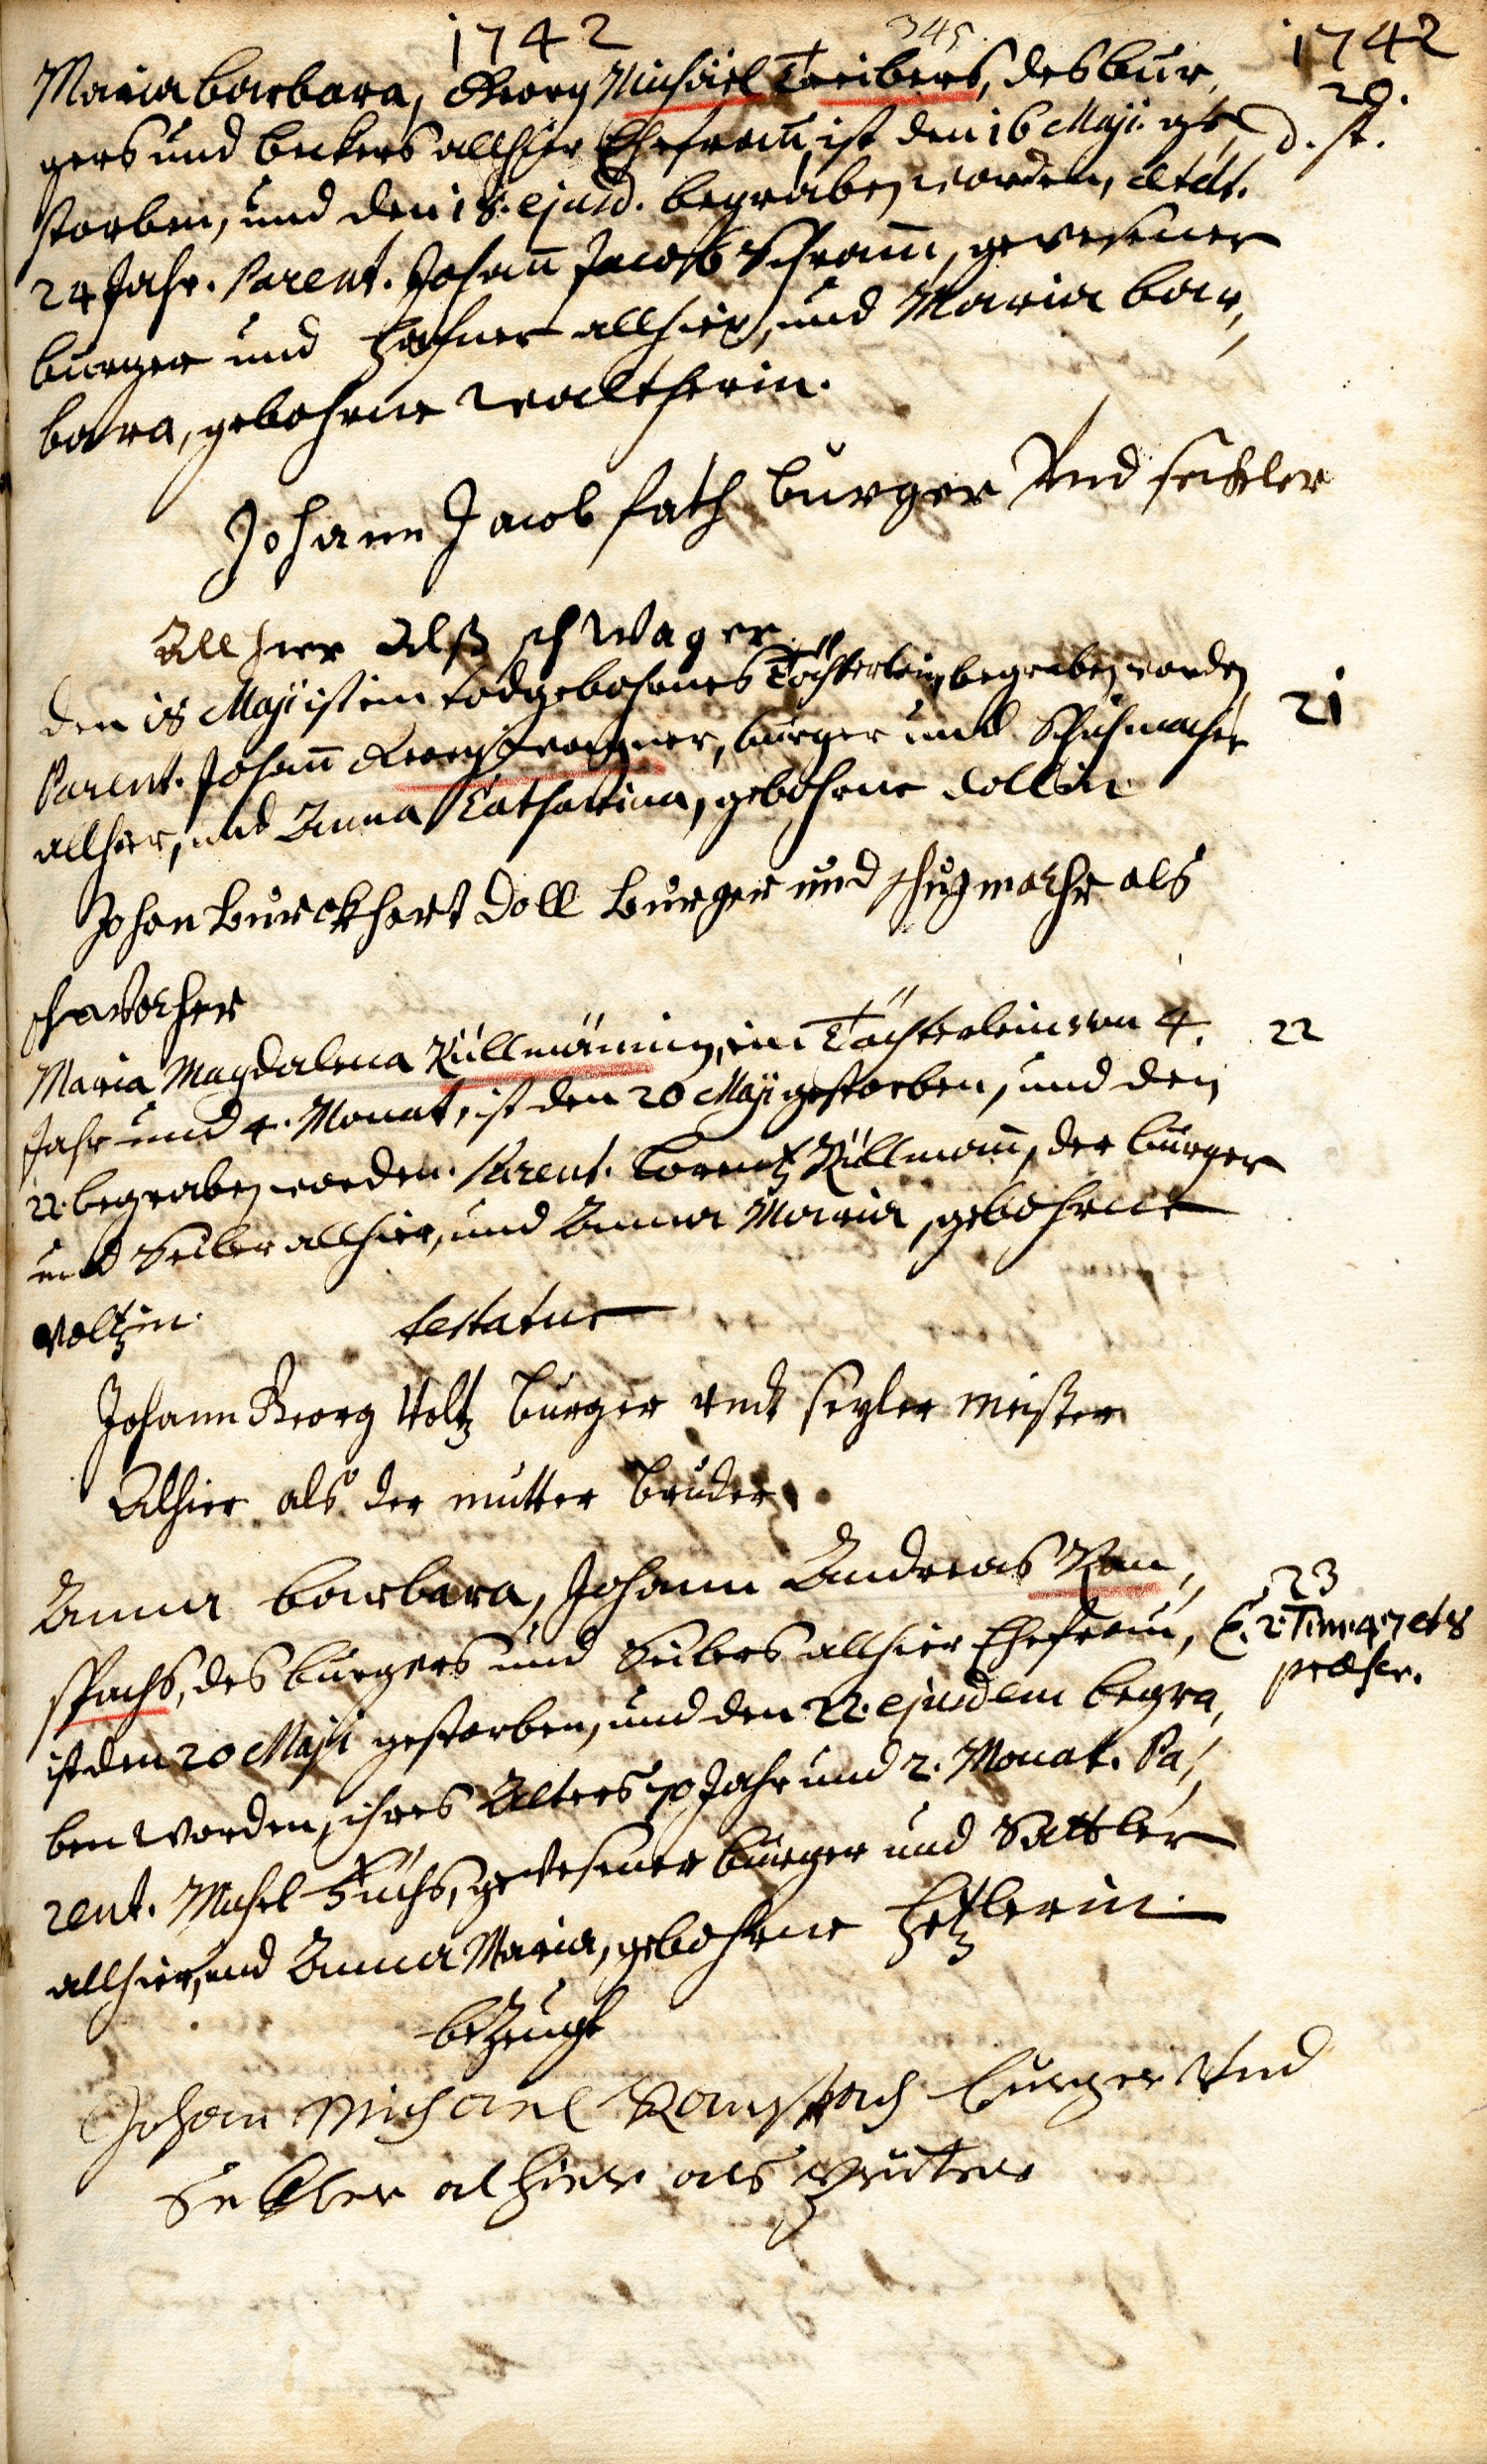 1742 345. 1742
Maria Barbara, Georg Michael Treibers, des Bur,
gers und Beckers allhier Ehefrau, ist den 16 Maji. ge,
20.
d. st.
storben, und den 18. ejusd. begraben worden, aetat.
24 Jahr. Parent. Johañ Jacob Schram̃, gewesener
burger und Hafner allhier, und Maria Bar,
bara, gebohrne Waltherin.
Johann Jacob fath burger Und seckler
All hier Alß schWager
den 18 Maji ist ein todgebohrnes Töchterlein begraben worden
21
Parent. Johañ Georg Wagner, burger und Schuhmacher
allhier, und Anna Catharina, gebohrne Dollin
Johan Burckhart Doll Burger und schuhmacher als
schwocher
Maria Magdalena Küllmännin, ein Töchterlein von 4.
22
Jahr und 4. Monat, ist den 20 Maji gestorben, und den
22. begraben worden. Parent. Lorentz Küllmañ, der burger
und Seiler allhier, und Anna Maria, gebohrne
Voltzin. testatur
Johann Georg Voltz burger undt seyler meister
Alhier als der mutter bruder
Anna Barbara, Johann Andreas Ran,
23
spachs, des burgers und Seilers allhier Ehefrau,
C. 2. Tim. 4. 7 et 8
praeter.
ist den 20 Maji gestorben, und den 22. ejusdem begra,
ben worden, ihres Alters 50 Jahr und 2. Monat. Pa,
rent. Michel Fuchs, gewesener burger und Sattler
allhier, und Anna Maria, gebohrne Hetzlerin.
bezeugt
Johan Michael Ranspach burger Und
Seckler alhier als